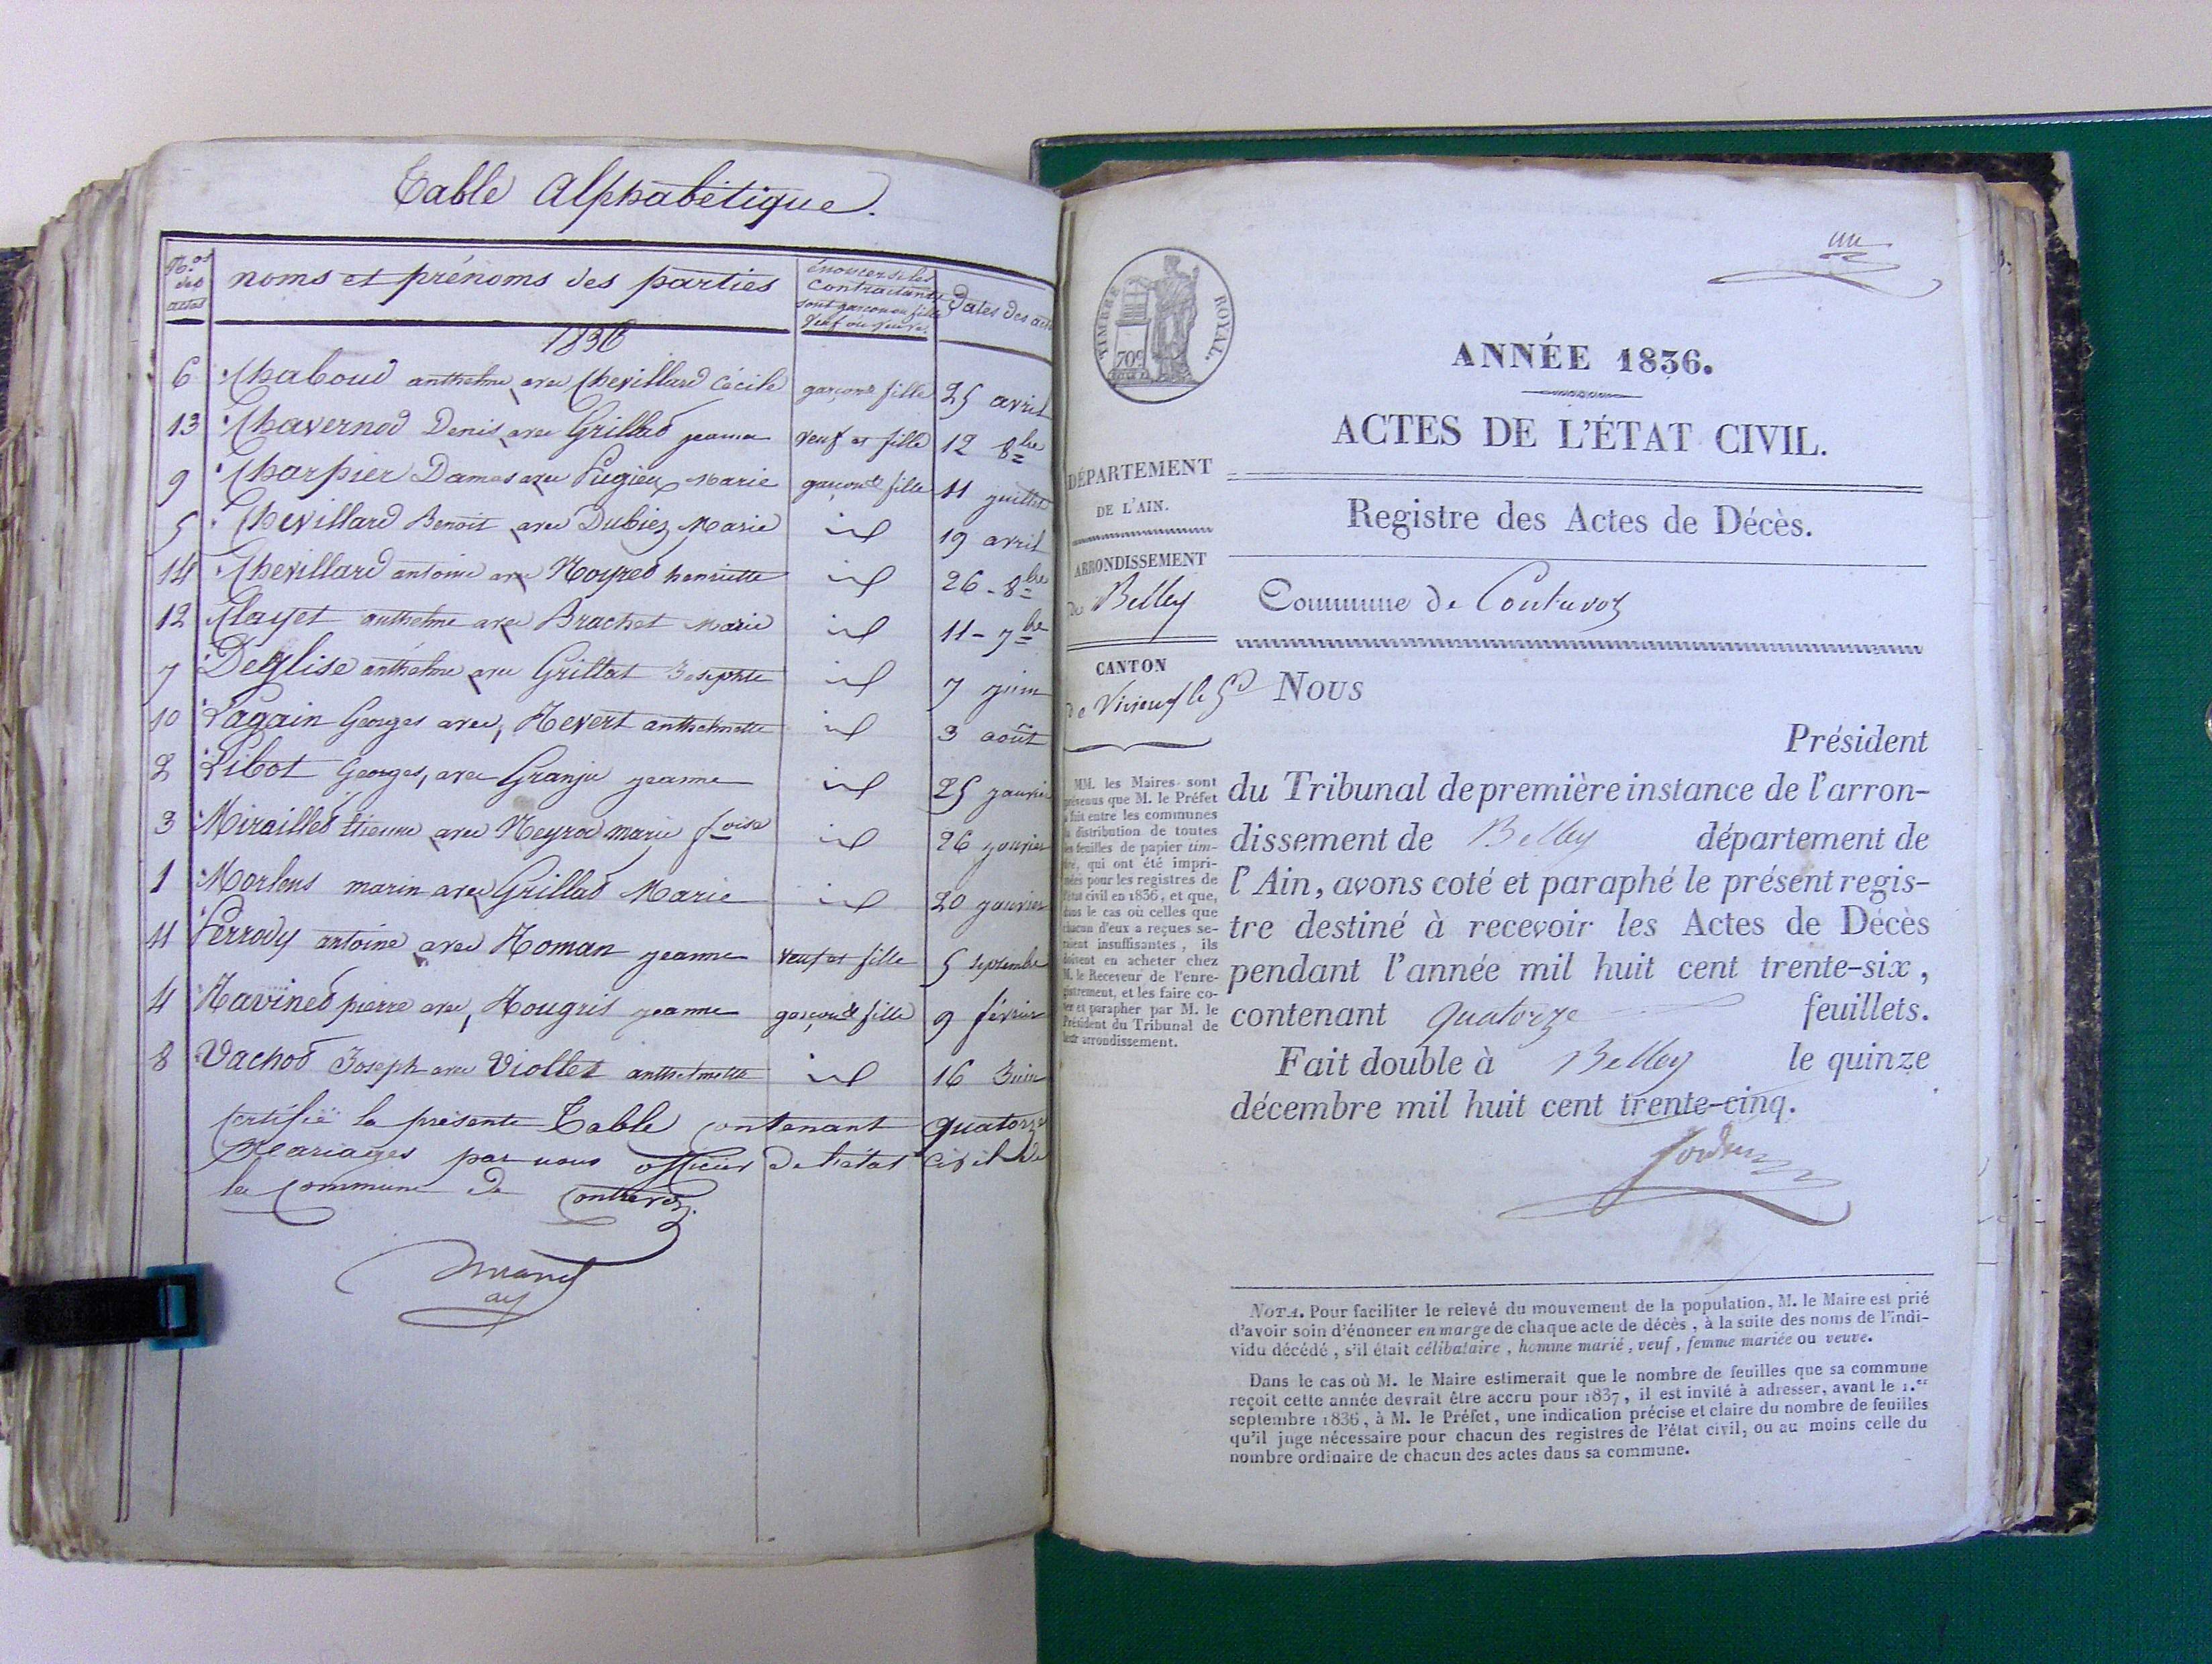 Table Alphabétique.
N.os des actes
noms et prénoms des parties
énoncer si les contractants sont garçon ou fille veuf ou veuve.
Dates des actes
1836
6 Chaboud anthelme avec Chevillard Cécile garçon & fille 25 avril
13 Chavernod Denis avec Grillad jeanne veuf et fille 12 8bre
9 Charpier Damas avec Pugieu Marie garçon & fille 11 juillet
5 Chevillard Benoit avec Dubiez Marie id 19 avril
14 Chevillard antoine avec Noyred henriette id 26 - 8bre
12 Clayet anthelme avec Brachet Marie id 11 - 7bre
7 Déglise anthelme avec Grillat Josephte id 7 juin
10 Lagain Georges avec, Revert anthelmette id 3 août
2 Libot Georges, avec Granju jeanne id 25 janvier
3 Mirailled étienne avec Neyrod marie foise id 26 janvier
1 Morlens marin avec Grillad Marie id 20 janvier
11 Perrody antoine avec Roman jeanne veuf et fille 5 septembre
4 Ravined pierre avec, Rougris jeanne garçon & fille 9 février
8 Vachod Joseph avec Viollet anthelmette id 16 Juin
Certifié la présente Table contenant quatorze
Mariages par nous officier de l'état civil de
la Commune de Contrevoz.
un
TIMBRE ROYAL.
70c
ANNÉE 1836.
ACTES DE L'ÉTAT CIVIL.
DÉPARTEMENT
DE L'AIN.
Registre des Actes de Décès.
ARRONDISSEMENT
de Belley
Commune de Contrevoz
CANTON
de Virieux le Gd
Nous
Président
du Tribunal de première instance de l'arron-
dissement de Belley département de
l'Ain, avons coté et paraphé le présent regis-
tre destiné à recevoir les Actes de Décès
pendant l'année mil huit cent trente-six,
contenant quatorze feuillets.
Fait double à Belley le quinze
décembre mil huit cent trente-cinq.
MM. les Maires sont
prévenus que M. le Préfet
a fait entre les communes
la distribution de toutes
les feuilles de papier tim-
bré, qui ont été impri-
mées pour les registres de
l'état civil en 1836, et que,
dans le cas où celles que
chacun d'eux a reçues se-
raient insuffisantes, ils
doivent en acheter chez
M. le Receveur de l'enre-
gistrement, et les faire co-
ter et parapher par M. le
Président du Tribunal de
leur arrondissement.
NOTA. Pour faciliter le relevé du mouvement de la population, M. le Maire est prié
d'avoir soin d'énoncer en marge de chaque acte de décès, à la suite des noms de l'indi-
vidu décédé, s'il était célibataire, homme marié, veuf, femme mariée ou veuve.
Dans le cas où M. le Maire estimerait que le nombre de feuilles que sa commune
reçoit cette année devrait être accru pour 1837, il est invité à adresser, avant le 1.er
septembre 1836, à M. le Préfet, une indication précise et claire du nombre de feuilles
qu'il juge nécessaire pour chacun des registres de l'état civil, ou au moins celle du
nombre ordinaire de chacun des actes dans sa commune.